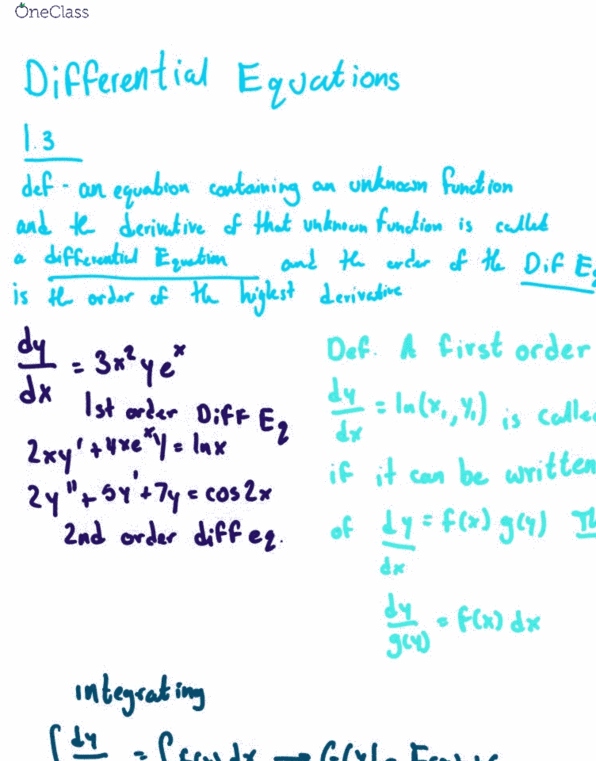 OneClass
Differential Equations
1.3
def - an equation containing an unknown function
and the derivative of that unknown function is called
a differential Equation and the order of the Dif Eq
is the order of the highest derivative
dy/dx = 3x²ye^x
1st order Diff Eq
2xy' + 4xe^x y = lnx
2y" + 5y' + 7y = cos2x
2nd order diff eq.
Def. A first order
dy/dx = ln(x₁, y₁) is called
if it can be written
of dy/dx = f(x) g(y)
dy/g(y) = f(x) dx
integrating